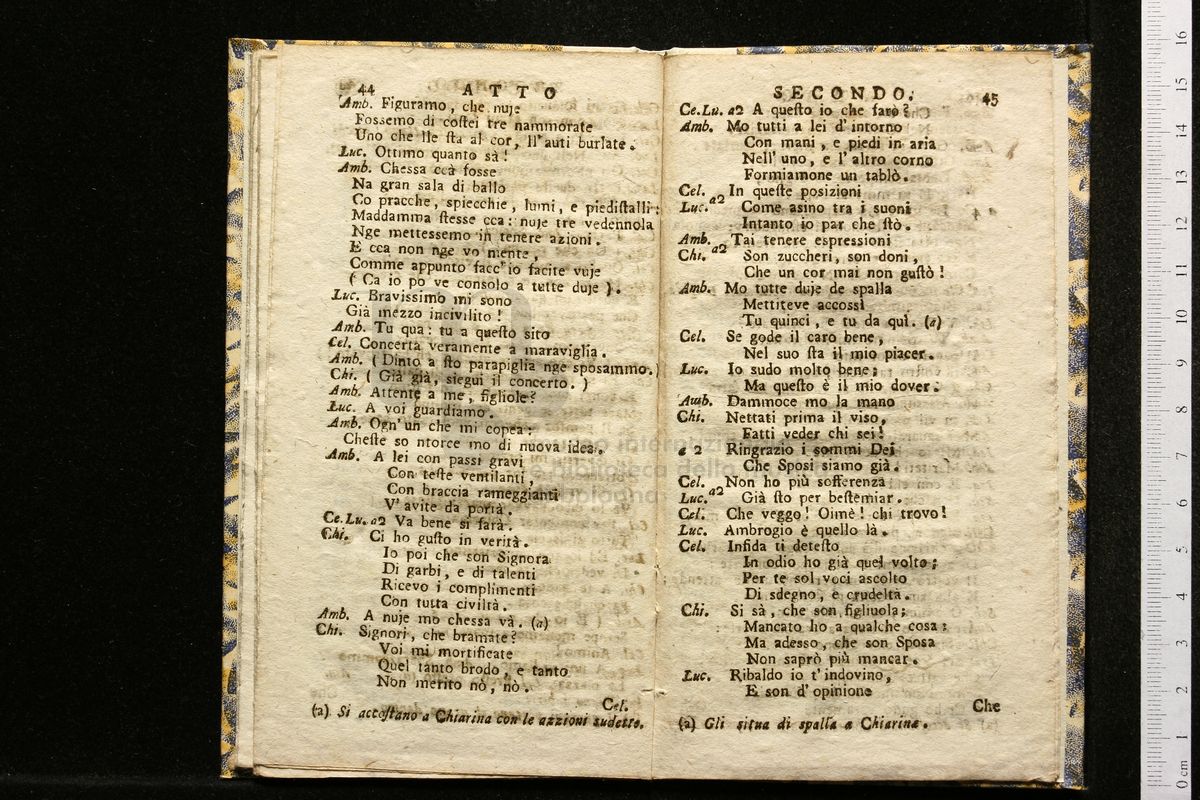 44 ATTO
Amb. Figuramo, che nuje
Fossemo di coſtei tre nammorate
Uno che lle ſta al cor, ll'auti burlate.
Luc. Ottimo quanto sà!
Amb. Chessa ccà fosse
Na gran sala di ballo
Co pracche, spiecchie, lumi, e piediſtalli:
Maddamma ſtesse cca: nuje tre vedennola
Nge mettessemo in tenere azioni.
E cca non nge vo niente,
Comme appunto facc'io facite vuje
( Ca io po ve consolo a tutte duje ).
Luc. Bravissimo mi sono
Già mezzo incivilito!
Amb. Tu qua: tu a queſto sito
Cel. Concerta veramente a maraviglia.
Amb. ( Dinto a ſto parapiglia nge sposammo.)
Chi. ( Già già, siegui il concerto. )
Amb. Attente a me, figliole?
Luc. A voi guardiamo.
Amb. Ogn'un che mi copea:
Cheſte so ntorce mo di nuova idea.
Amb. A lei con passi gravi
Con teſte ventilanti,
Con braccia rameggianti
V'avite da portà.
Ce.Lu. a2 Va bene si farà.
Chi. Ci ho guſto in verità.
Io poi che son Signora
Di garbi, e di talenti
Ricevo i complimenti
Con tutta civiltà.
Amb. A nuje mo chessa và. (a)
Chi. Signori, che bramate?
Voi mi mortificate
Quel tanto brodo, e tanto
Non merito nò, nò.
Cel.
(a) Si accoſtano a Chiarina con le azzioni sudette.
SECONDO. 45
Ce.Lu. a2 A queſto io che farò?
Amb. Mo tutti a lei d'intorno
Con mani, e piedi in aria
Nell'uno, e l'altro corno
Formiamone un tablò.
Cel. In queſte posizioni
Luc. a2 Come asino tra i suoni
Intanto io par che ſtò.
Amb. Tai tenere espressioni
Chi. a2 Son zuccheri, son doni,
Che un cor mai non guſtò!
Amb. Mo tutte duje de spalla
Mettiteve accossì
Tu quinci, e tu da quì. (a)
Cel. Se gode il caro bene,
Nel suo ſta il mio piacer.
Luc. Io sudo molto bene;
Ma queſto è il mio dover.
Amb. Dammoce mo la mano
Chi. Nettati prima il viso,
Fatti veder chi sei!
a 2 Ringrazio i sommi Dei
Che Sposi siamo già.
Cel. Non ho più sofferenza
Luc. a2 Già ſto per beſtemiar.
Cel. Che veggo! Oimè! chi trovo!
Luc. Ambrogio è quello là.
Cel. Infida ti deteſto
In odio ho già quel volto;
Per te sol, voci ascolto
Di sdegno, e crudeltà.
Chi. Si sà, che son figliuola;
Mancato ho a qualche cosa:
Ma adesso, che son Sposa
Non saprò più mancar.
Luc. Ribaldo io t'indovino,
E son d'opinione
Che
(a) Gli situa di spalla a Chiarina.